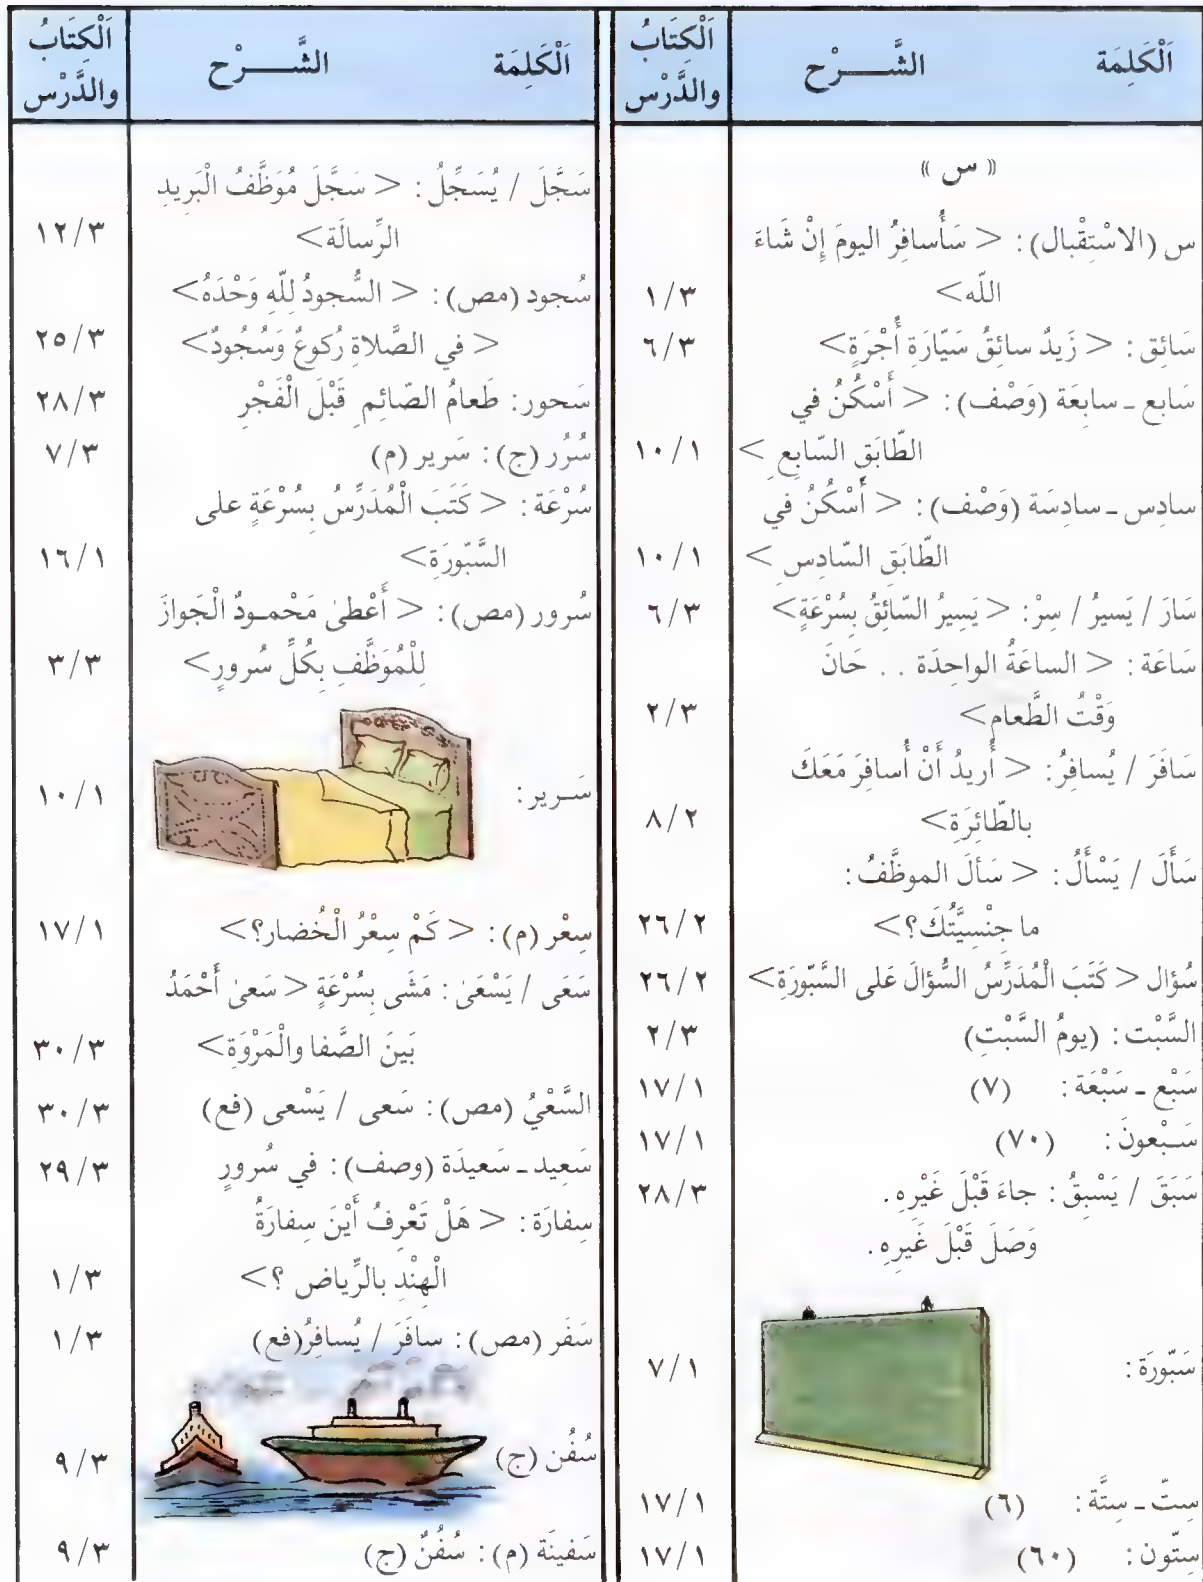 اَلْكَلِمَة الشَّـــرْح اَلْكِتَابُ والدَّرْس
« س »
س (الاسْتِقْبال): < سَأُسافِرُ اليومَ إِنْ شَاءَ
اللّه> ١/٣
سَائِق: < زَيدٌ سائِقُ سَيّارَةِ أُجْرَةٍ> ٦/٣
سَابع ـ سابِعَة (وَصْف): < أَسْكُنُ في
الطّابَقِ السّابِعِ > ١٠/١
سادِس ـ سادِسَة (وَصْف): < أَسْكُنُ في
الطّابَقِ السّادِسِ > ١٠/١
سَارَ / يَسيرُ / سِرْ: < يَسِيرُ السّائِقُ بِسُرْعَةٍ> ٦/٣
سَاعَة: < الساعَةُ الواحِدَة . . حَانَ
وَقْتُ الطَّعام> ٢/٣
سَافَرَ / يُسافِرُ: < أُريدُ أَنْ أُسافِرَ مَعَكَ
بالطّائِرَةِ> ٨/٢
سَأَلَ / يَسْأَلُ: < سَأَلَ الموظَّفُ:
ما جِنْسِيَّتُكَ؟> ٢٦/٢
سُؤال < كَتَبَ الْمُدَرِّسُ السُّؤالَ عَلى السَّبّورَةِ> ٢٦/٢
السَّبْت: (يومُ السَّبْتِ) ٢/٣
سَبْع ـ سَبْعَة: (٧) ١٧/١
سَـبْعونَ: (٧٠) ١٧/١
سَبَقَ / يَسْبِقُ: جاءَ قَبْلَ غَيْرِهِ. ٢٨/٣
وَصَلَ قَبْلَ غَيرِهِ.
سَبّورَة: ٧/١
سِتّ ـ سِتَّة: (٦) ١٧/١
سِتّون: (٦٠) ١٧/١
اَلْكَلِمَة الشَّـــرْح اَلْكِتَابُ والدَّرْس
سَجَّلَ / يُسَجِّلُ: < سَجَّلَ مُوَظَّفُ الْبَريدِ
الرِّسالَة> ١٢/٣
سُجود (مص): < السُّجودُ لِلّهِ وَحْدَهُ>
< في الصَّلاةِ رُكوعٌ وَسُجُودٌ> ٢٥/٣
سَحور: طَعامُ الصّائِمِ قَبْلَ الْفَجْرِ ٢٨/٣
سُرُر (ج): سَرير (م) ٧/٣
سُرْعَة: < كَتَبَ الْمُدَرِّسُ بِسُرْعَةٍ على
السَّبّورَةِ> ١٦/١
سُرور (مص): < أَعْطىٰ مَحْمـودٌ الْجَوازَ
لِلْمُوَظَّفِ بِكُلِّ سُرورٍ> ٣/٣
سَـرير: ١٠/١
سِعْر (م): < كَمْ سِعْرُ الْخُضار؟> ١٧/١
سَعَى / يَسْعَىٰ: مَشَى بِسُرْعَةٍ < سَعىٰ أَحْمَدُ
بَينَ الصَّفا والْمَرْوَةِ> ٣٠/٣
السَّعْيُ (مص): سَعى / يَسْعى (فع) ٣٠/٣
سَعِيد ـ سَعيدَة (وصف): في سُرورٍ ٢٩/٣
سِفارَة: < هَلْ تَعْرِفُ أَيْنَ سِفارَةُ
الْهِنْدِ بالرِّياض ؟> ١/٣
سَفَر (مص): سافَرَ / يُسافِرُ(فع) ١/٣
سُفُن (ج) ٩/٣
سَفينَة (م): سُفُنٌ (ج) ٩/٣